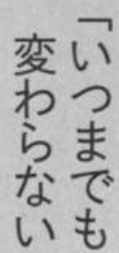 「いつまでも
変わらない